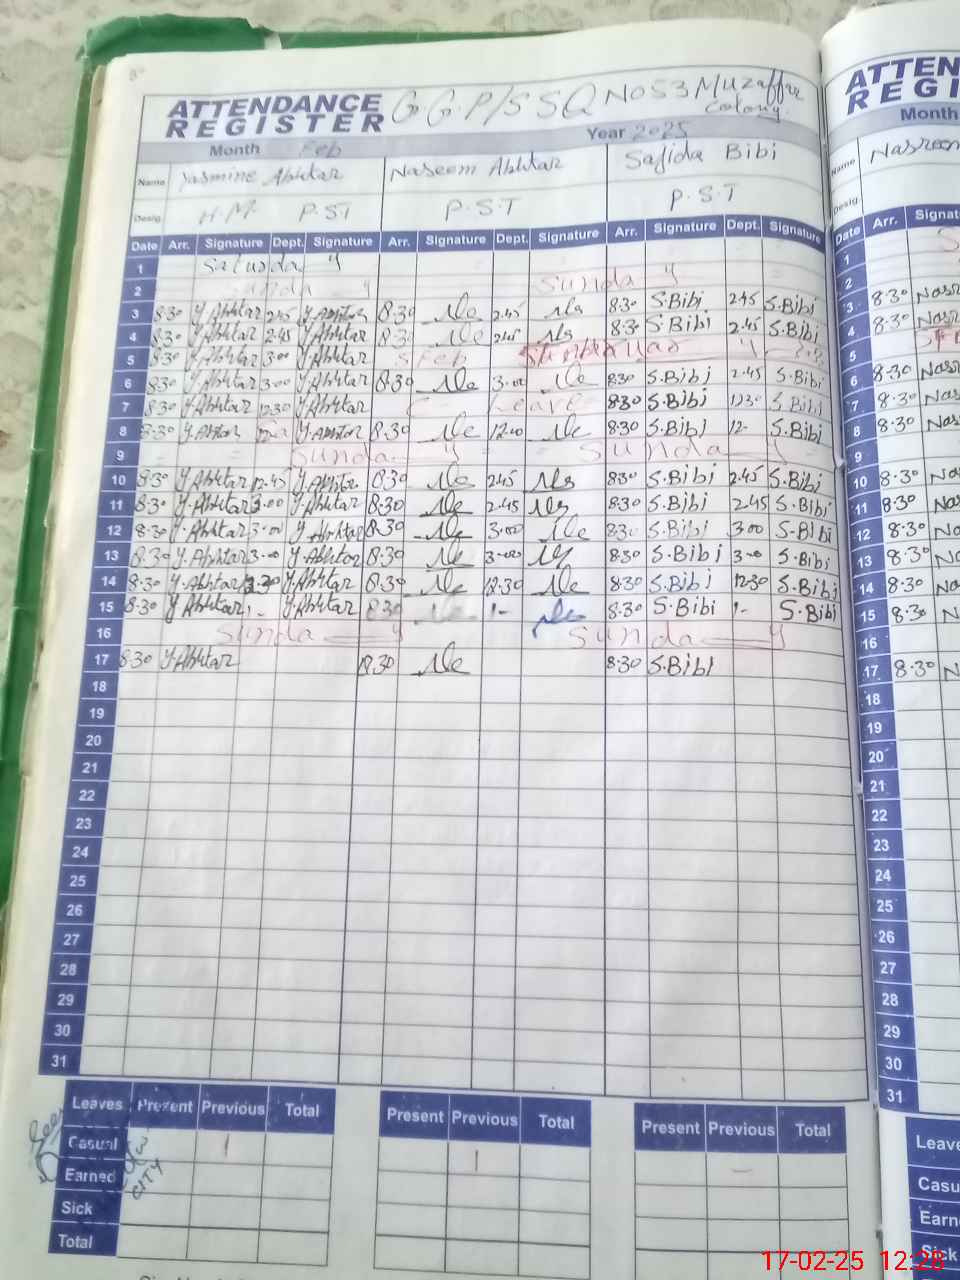 ATTENDANCE REGISTER G G.P/S SQ NO53 Muzaffar Colony
Month Feb Year 2025
Name Yasmine Akhtar Naseem Akhtar Sajida Bibi
Desig. H.M. P.ST P.S.T P.S.T
Date Arr. Signature Dept. Signature Arr. Signature Dept. Signature Arr. Signature Dept. Signature
1 Saturday
2 Sunday Sunday
3 8:30 Y.Akhtar 2:45 Y.Akhtar 8:30 2:45 8:30 S.Bibi 2:45 S.Bibi
4 8:30 Y.Akhtar 2:45 Y.Akhtar 8:30 2:45 8:30 S.Bibi 2.45 S.Bibi
5 8:30 Y.Akhtar 3:00 Y.Akhtar 5 Feb
6 8:30 Y.Akhtar 3:00 Y.Akhtar 8:30 3:00 8:30 S.Bibi 2.45 S.Bibi
7 8:30 Y.Akhtar 12:30 Y.Akhtar C Leave 8:30 S.Bibi 1230 S.Bibi
8 8:30 Y.Akhtar Y.Akhtar 8:30 12:00 8:30 S.Bibi 12- S.Bibi
9 Sunday Sunday
10 8:30 Y.Akhtar 12.45 Y.Akhtar 8:30 2:45 8:30 S.Bibi 2.45 S.Bibi
11 8:30 Y.Akhtar 3:00 Y.Akhtar 8:30 2.45 8:30 S.Bibi 2.45 S.Bibi
12 8:30 Y.Akhtar 3:00 Y.Akhtar 8:30 3:00 8:30 S.Bibi 3:00 S.Bibi
13 8:30 Y.Akhtar 3:00 Y.Akhtar 8:30 3:00 8:30 S.Bibi 3:00 S.Bibi
14 8:30 Y.Akhtar 12:30 Y.Akhtar 8:30 12:30 8:30 S.Bibi 12:30 S.Bibi
15 8:30 Y.Akhtar 1- Y.Akhtar 8:30 1- 8:30 S.Bibi 1- S.Bibi
16 Sunday Sunday
17 8:30 Y.Akhtar 8:30 8:30 S.Bibi
18
19
20
21
22
23
24
25
26
27
28
29
30
31
Leaves Present Previous Total Present Previous Total Present Previous Total
Casual 1 1 -
Earned
Sick
Total
CITY
ATTEN
REGI
Month
Name Nasreen
Desig
Date Arr. Signatu
1
2
3 8:30 Nasr
4 8:30 Nasr
5
6 8:30 Nas
7 8:30 Nas
8 8:30 Nas
9
10 8:30 Nas
11 8:30 Nas
12 8:30 Nas
13 8:30 Nas
14 8:30 Nas
15 8:30 Nas
16
17 8:30 N
18
19
20
21
22
23
24
25
26
27
28
29
30
31
Leave
Casu
Earn
Sick
17-02-25 12:28